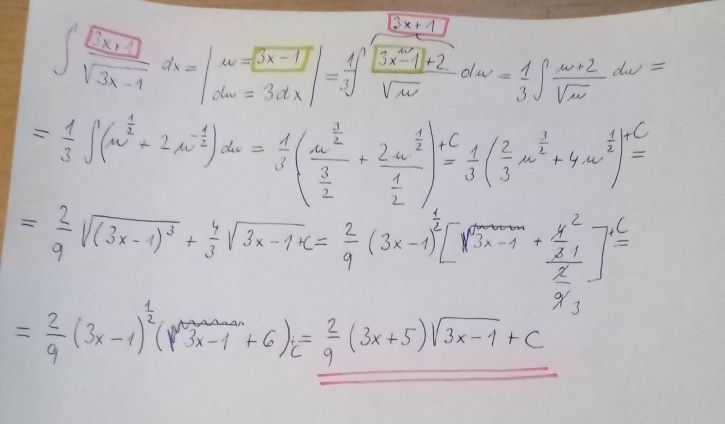 3x+1
∫ (3x+1)/√(3x-1) dx = | u = 3x-1, du = 3dx | = 1/3 ∫ (3x-1+2)/√u du = 1/3 ∫ (u+2)/√u du =
= 1/3 ∫ (u^(1/2) + 2u^(-1/2)) du = 1/3 (u^(3/2)/(3/2) + 2u^(1/2)/(1/2)) +C = 1/3 (2/3 u^(3/2) + 4u^(1/2)) +C =
= 2/9 √((3x-1)^3) + 4/3 √(3x-1) +C = 2/9 (3x-1)^(1/2) [3x-1 + (4/3)/(2/9)] +C =
= 2/9 (3x-1)^(1/2) (3x-1 + 6) +C = 2/9 (3x+5) √(3x-1) + C